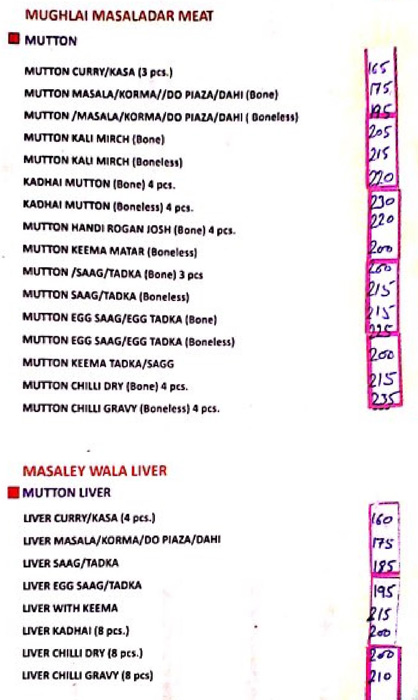 MUGHLAI MASALADAR MEAT
MUTTON
MUTTON CURRY/KASA (3 pcs.) 165
MUTTON MASALA/KORMA//DO PIAZA/DAHI (Bone) 175
MUTTON /MASALA/KORMA/DO PIAZA/DAHI ( Boneless) 195
MUTTON KALI MIRCH (Bone) 205
MUTTON KALI MIRCH (Boneless) 215
KADHAI MUTTON (Bone) 4 pcs. 220
KADHAI MUTTON (Boneless) 4 pcs. 230
MUTTON HANDI ROGAN JOSH (Bone) 4 pcs. 220
MUTTON KEEMA MATAR (Boneless) 200
MUTTON /SAAG/TADKA (Bone) 3 pcs 200
MUTTON SAAG/TADKA (Boneless) 215
MUTTON EGG SAAG/EGG TADKA (Bone) 215
MUTTON EGG SAAG/EGG TADKA (Boneless) 225
MUTTON KEEMA TADKA/SAGG 200
MUTTON CHILLI DRY (Bone) 4 pcs. 215
MUTTON CHILLI GRAVY (Boneless) 4 pcs. 235
MASALEY WALA LIVER
MUTTON LIVER
LIVER CURRY/KASA (4 pcs.) 160
LIVER MASALA/KORMA/DO PIAZA/DAHI 175
LIVER SAAG/TADKA 185
LIVER EGG SAAG/TADKA 195
LIVER WITH KEEMA 215
LIVER KADHAI (8 pcs.) 200
LIVER CHILLI DRY (8 pcs.) 200
LIVER CHILLI GRAVY (8 pcs) 210